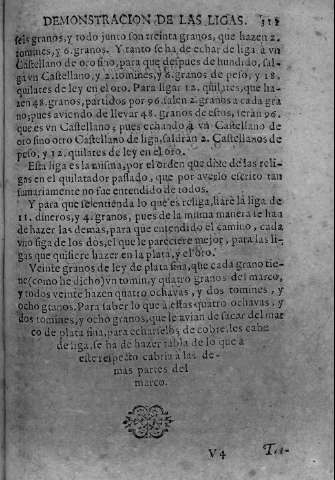 DEMONSTRACION DE LAS LIGAS.
seis granos, y todo junto son treinta granos, que hazen 2.
tomines, y 6. granos. Y tanto se ha de echar de liga à vn
Castellano de oro fino, para que despues de hundido, sal-
ga vn Castellano, y 2. tomines, y 6. granos de peso, y 18.
quilates de ley en el oro. Para ligar 12. quilates, que ha-
zen 48. granos, partidos por 96. salen 2. granos a cada gra
no; pues aviendo de llevar 48. granos de estos, seràn 96.
que es vn Castellano; pues echando à vn Castellano de
oro fino otro Castellano de liga, saldràn 2. Castellanos de
peso, y 12. quilates de ley en el oro.
Esta liga es la misma, por el orden que dixe de las reli-
gas en el quilatador passado, que por averlo escrito tan
sumariamente no fue entendido de todos.
Y para que se entienda lo que es religa, harè la liga de
11. dineros, y 4. granos, pues de la misma manera se han
de hazer las demas, para que entendido el camino, cada
vno siga de los dos, el que le pareciere mejor, para las li-
gas que quisiere hazer en la plata, y el oro.
Veinte granos de ley de plata fina, que cada grano tie-
ne (como he dicho) vn tomin, y quatro granos del marco,
y todos veinte hazen quatro ochavas, y dos tomines, y
ocho granos. Para saber lo que à estas quatro ochavas, y
dos tomines, y ocho granos, que le avian de sacar del mar
co de plata fina, para echarselos de cobre, les cabe
de liga, se ha de hazer tabla de lo que à
este respecto cabria à las de-
màs partes del
marco.
V4